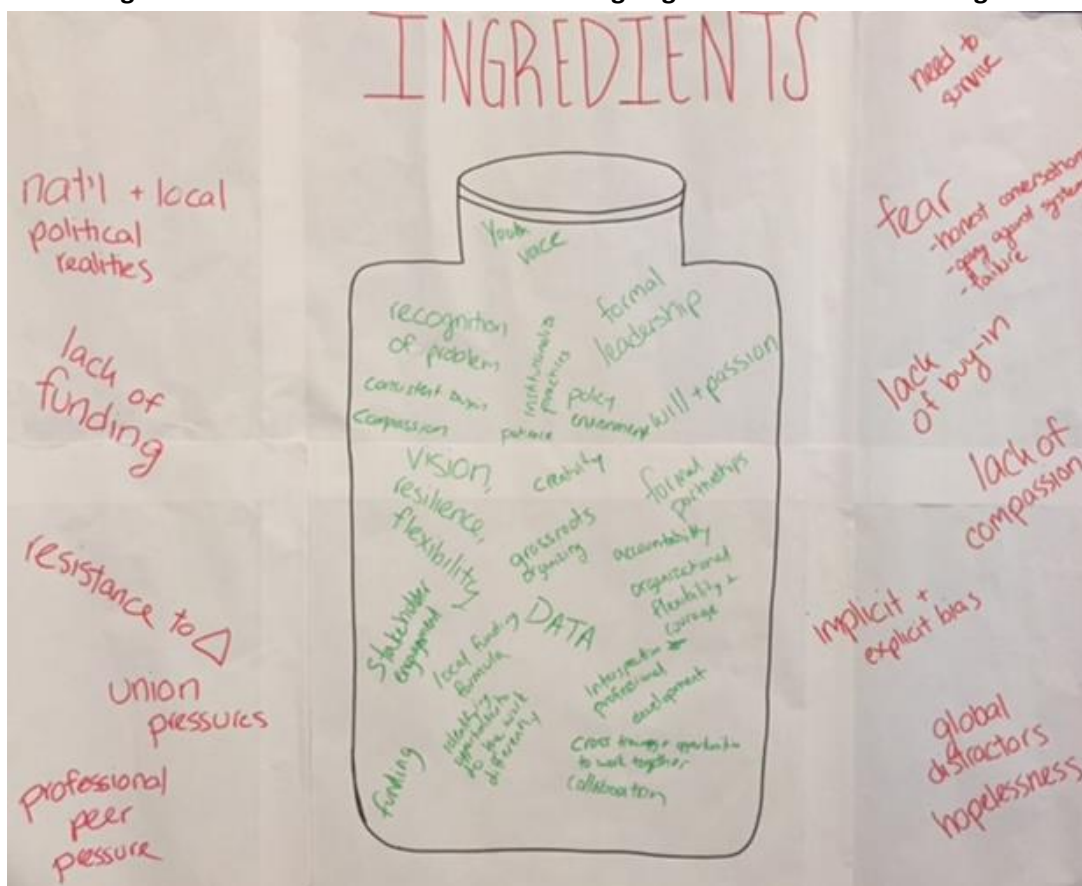 INGREDIENTS
nat'l + local
political
realities
lack of
funding
resistance to △
union
pressures
professional
peer
pressure
Youth
voice
recognition
of problem
formal
leadership
practices
policy
environment
will + passion
compassion
patience
vision,
resilience,
flexibility
creativity
formal
partnerships
grassroots
organizing
accountability
organizational
flexibility +
courage
DATA
stakeholder
engagement
local funding
formula
professional
development
identifying
opportunities
to
work
differently
funding
to work together
collaboration
need to
survive
fear
-honest conversations
-going against system
-failure
lack
of buy-in
lack of
compassion
implicit +
explicit bias
global
distractors
hopelessness